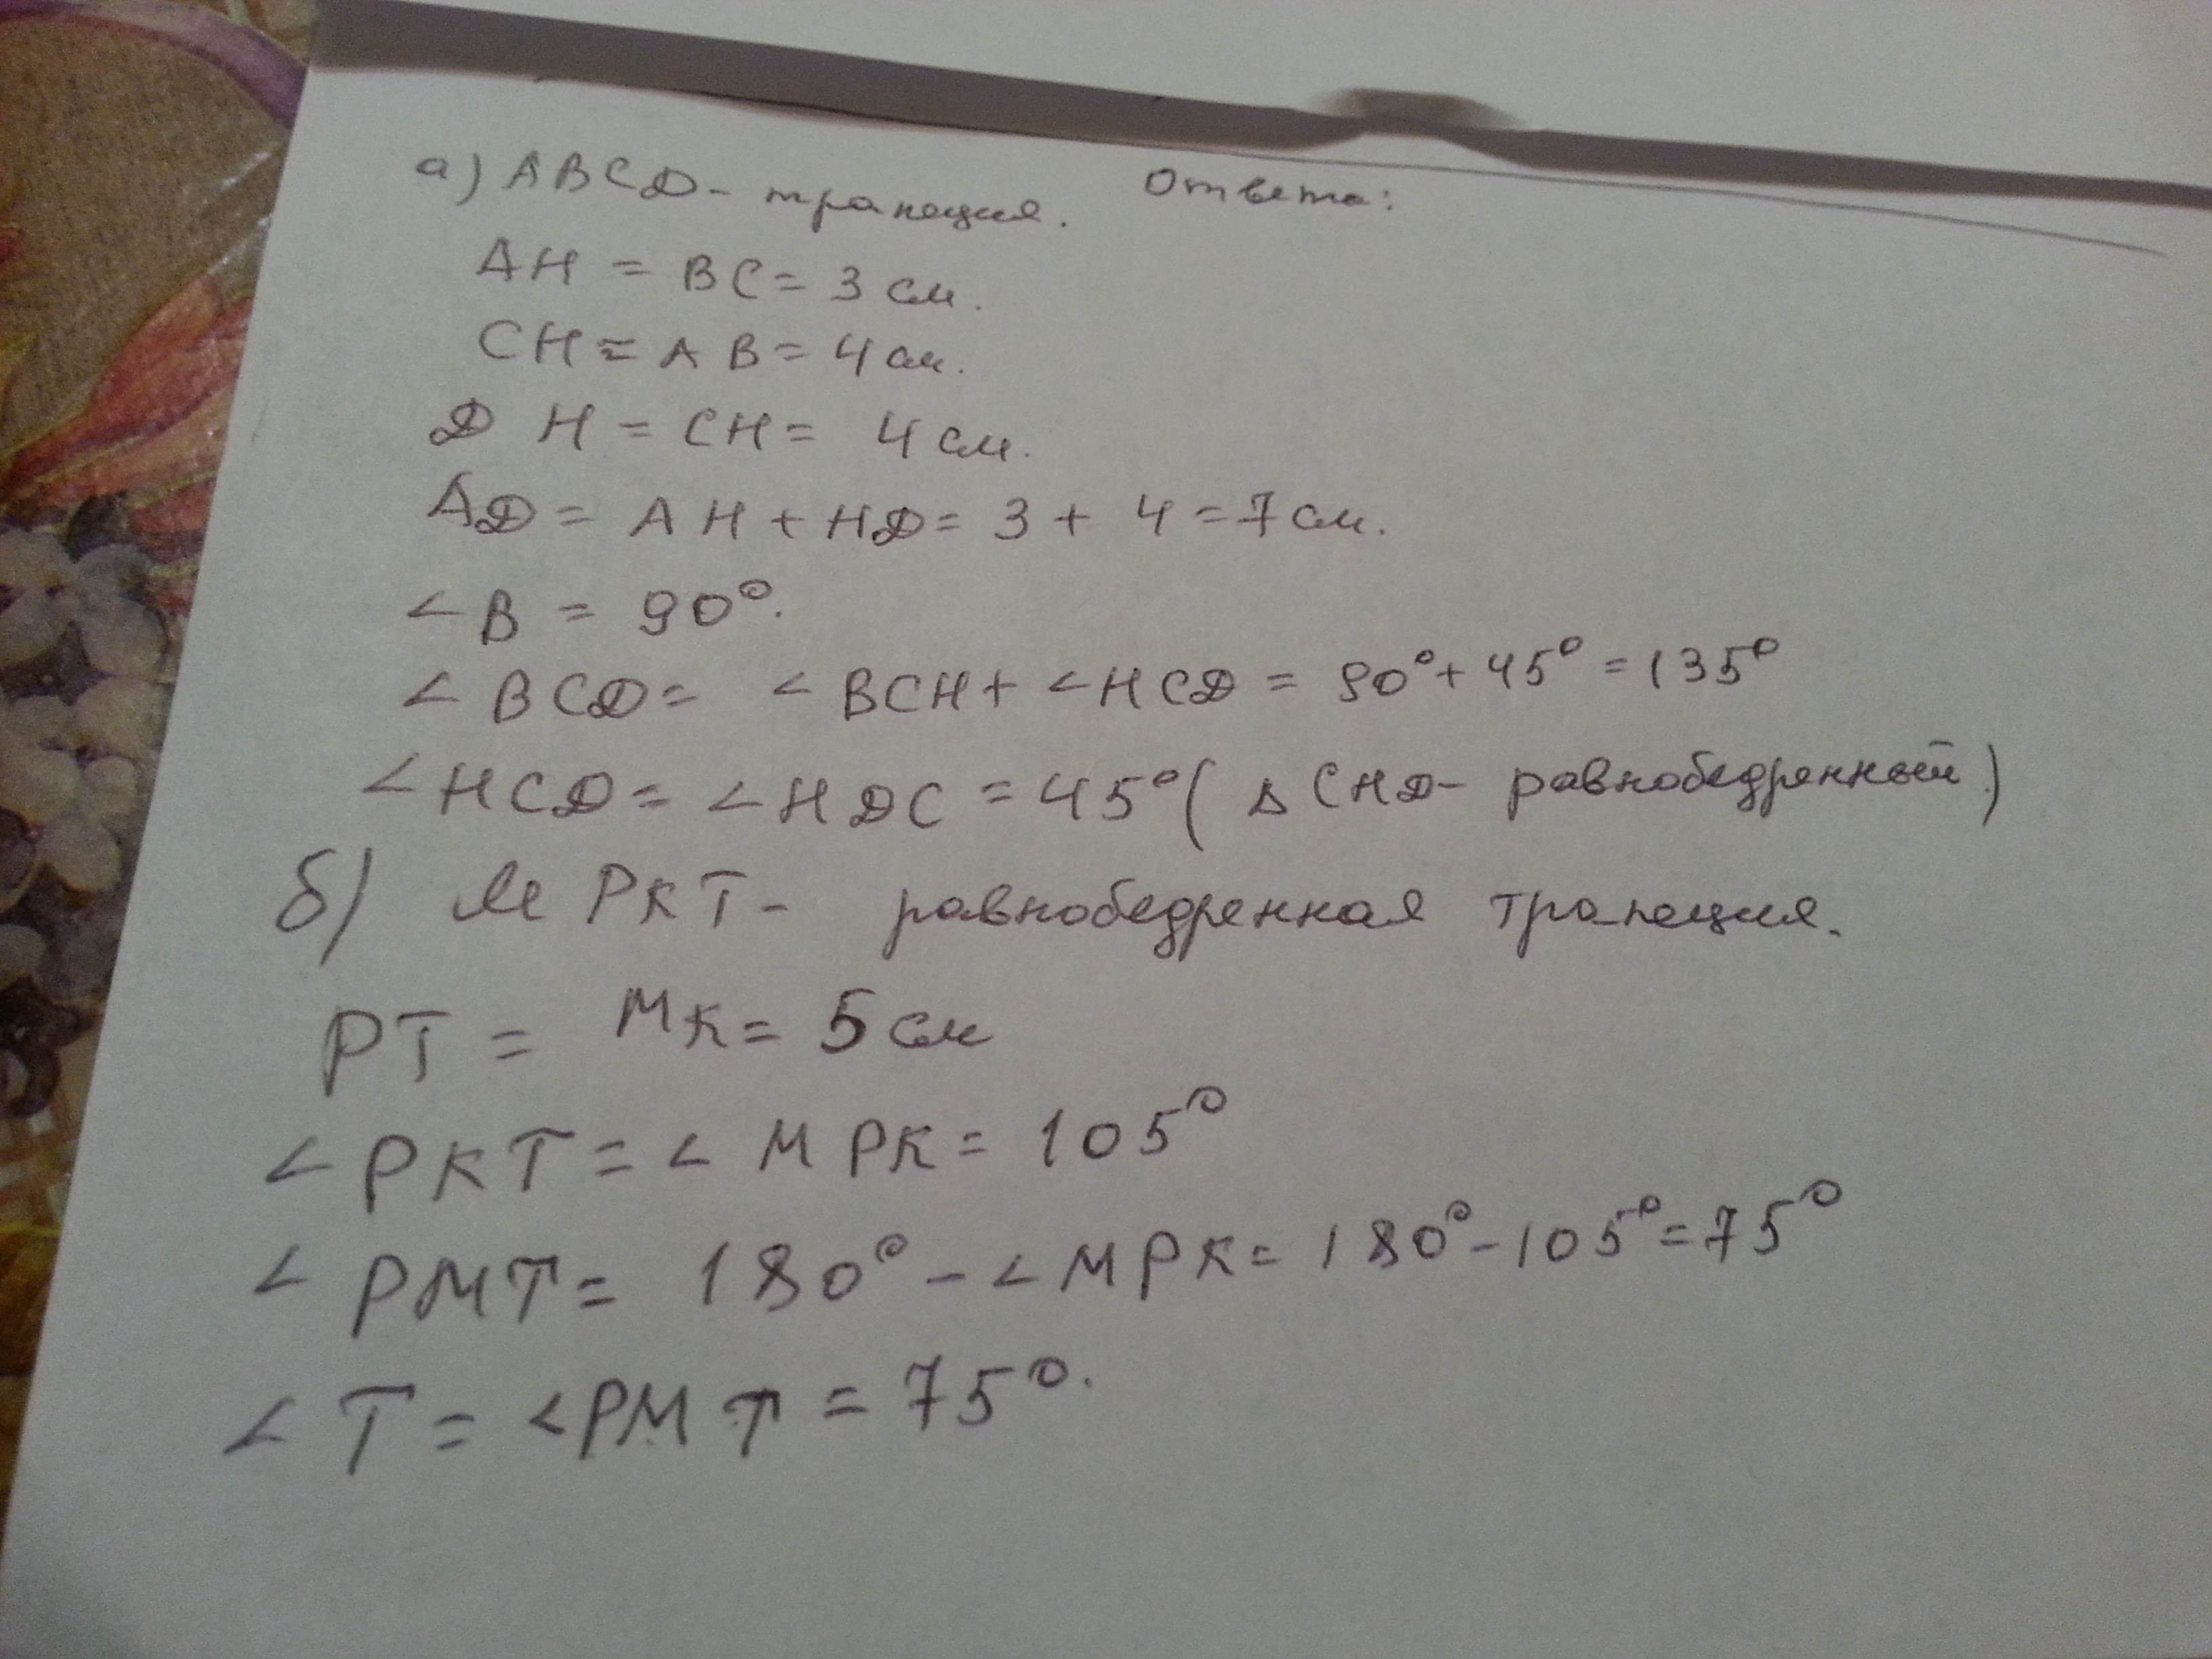 а) ABCD - трапеция. Ответы:
AH = BC = 3 см.
CH = AB = 4 см.
DH = CH = 4 см.
AD = AH + HD = 3 + 4 = 7 см.
∠B = 90°.
∠BCD = ∠BCH + ∠HCD = 90° + 45° = 135°
∠HCD = ∠HDC = 45° (Δ CHD - равнобедренный)
б) MPKT - равнобедренная трапеция.
PT = MK = 5 см
∠PKT = ∠MPK = 105°
∠PMT = 180° - ∠MPK = 180° - 105° = 75°
∠T = ∠PMT = 75°.